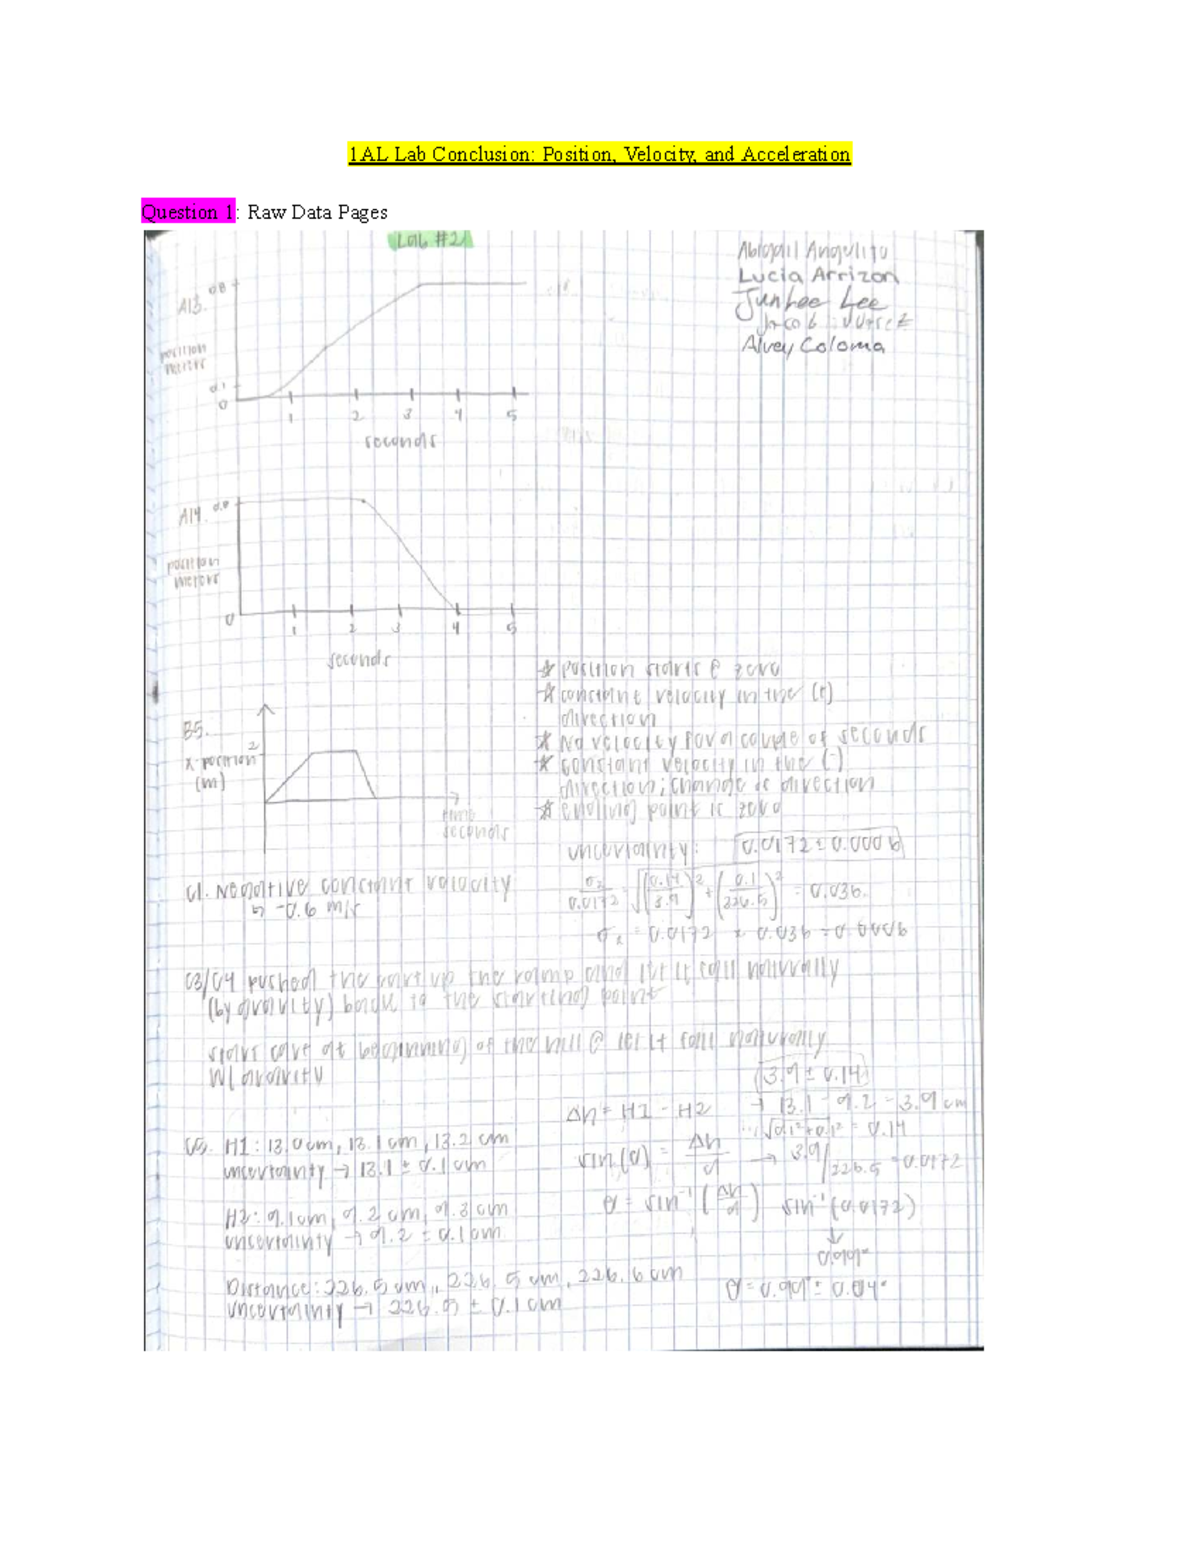 1AL Lab Conclusion: Position, Velocity, and Acceleration
Question 1: Raw Data Pages
Lab #2
Abigail
Lucia Arrizon
JunHee Lee
Jacob
Alvey Coloma
A13.
0.8
position
0.1
0
1 2 3 4 5
seconds
A14.
0.8
position
meters
0
1 2 3 4 5
seconds
* position starts @ zero
* constant velocity in the (+)
direction
* No velocity for a couple of seconds
* constant velocity in the (-)
direction; change of direction
* ending point is zero
B5.
2
x-position
(m)
time
seconds
uncertainty: 0.0172 ± 0.0006
σx/0.0172 = √(0.14/3.9)² + (0.1/226.5)² = 0.036
σx = 0.0172 x 0.036 = 0.0006
C1. Negative constant velocity
↳ -0.6 m/s
C3/C4 pushed the cart up the ramp and let it roll naturally
(by gravity) back to the starting point
start cart at beginning of the hill @ let it roll naturally
w/ gravity
3.9 ± 0.14
Δh = H1 - H2 → 13.1 - 9.2 = 3.9 cm
√0.1² + 0.1² = 0.14
C5. H1: 13.0cm, 13.1cm, 13.2cm
uncertainty → 13.1 ± 0.1cm
sin(θ) = Δh/d → 3.9/226.5 = 0.0172
H2: 9.1cm, 9.2cm, 9.3cm
uncertainty → 9.2 ± 0.1cm
θ = sin⁻¹(Δh/d) sin⁻¹(0.0172)
↓
0.99°
Distance: 226.5cm, 226.5cm, 226.6cm
uncertainty → 226.5 ± 0.1cm
θ = 0.99° ± 0.04°